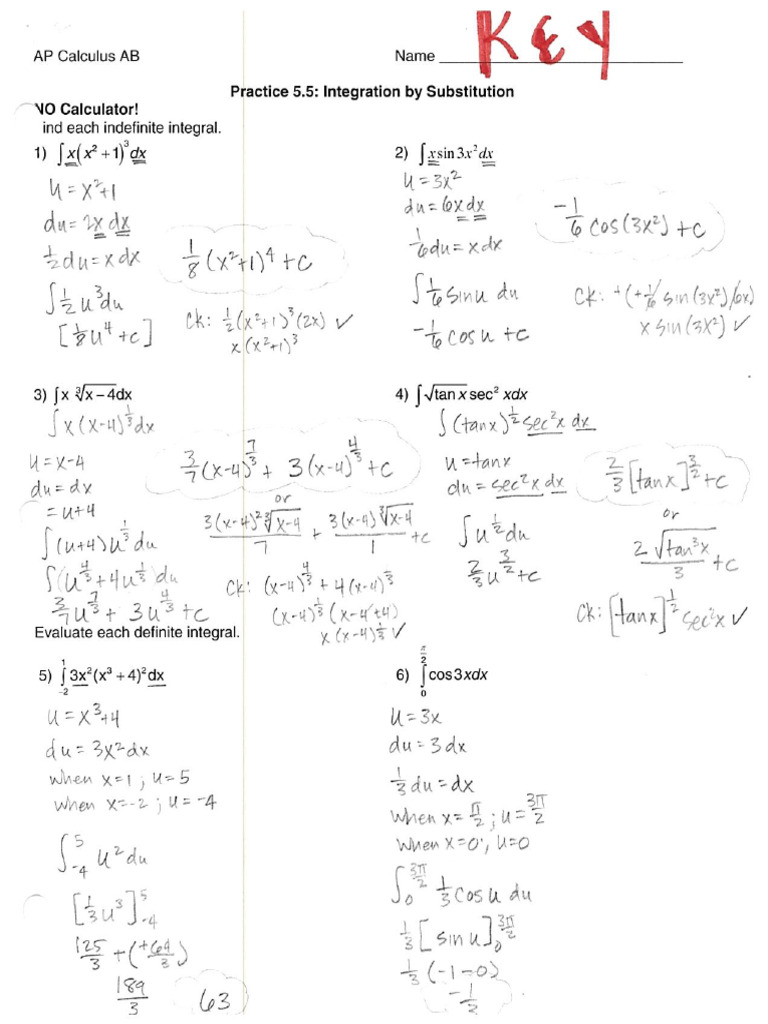 AP Calculus AB
Name KEY
Practice 5.5: Integration by Substitution
NO Calculator!
ind each indefinite integral.
1) ∫ x(x² + 1)³ dx
u = x²+1
du = 2x dx
½du = x dx
∫ ½ u³ du
[⅛u⁴ + c]
⅛(x²+1)⁴ + c
Ck: ½(x²+1)³(2x) ✓
x(x²+1)³
2) ∫ x sin 3x² dx
u = 3x²
du = 6x dx
1/6 du = x dx
∫ 1/6 sin u du
-1/6 cos u + c
-1/6 cos(3x²) + c
Ck: +(+1/6 sin(3x²)(6x)
x sin(3x²) ✓
3) ∫ x ∛(x – 4) dx
∫ x (x-4)^(1/3) dx
u = x-4
du = dx
= u+4
∫(u+4)u^(1/3) du
∫(u^(4/3) + 4u^(1/3)) du
3/7 u^(7/3) + 3u^(4/3) + c
3/7 (x-4)^(7/3) + 3(x-4)^(4/3) + c
or
3(x-4)² ∛(x-4) / 7 + 3(x-4) ∛(x-4) / 1 + c
Ck: (x-4)^(4/3) + 4(x-4)^(1/3)
(x-4)^(1/3) (x-4+4)
x(x-4)^(1/3) ✓
4) ∫ √(tan x) sec² x dx
∫ (tan x)^(1/2) sec²x dx
u = tan x
du = sec²x dx
∫ u^(1/2) du
2/3 u^(3/2) + c
2/3 [tan x]^(3/2) + c
or
2 √(tan³x) / 3 + c
Ck: [tan x]^(1/2) sec²x ✓
Evaluate each definite integral.
5) ∫₋₂¹ 3x²(x³ + 4)² dx
u = x³+4
du = 3x² dx
when x=1; u=5
when x=-2; u=-4
∫₋₄⁵ u² du
[⅓u³]₋₄⁵
125/3 + (+64/3)
189/3
63
6) ∫₀^(π/2) cos 3x dx
u = 3x
du = 3 dx
⅓ du = dx
when x = π/2; u = 3π/2
when x=0; u=0
∫₀^(3π/2) ⅓ cos u du
⅓ [sin u]₀^(3π/2)
⅓ (-1-0)